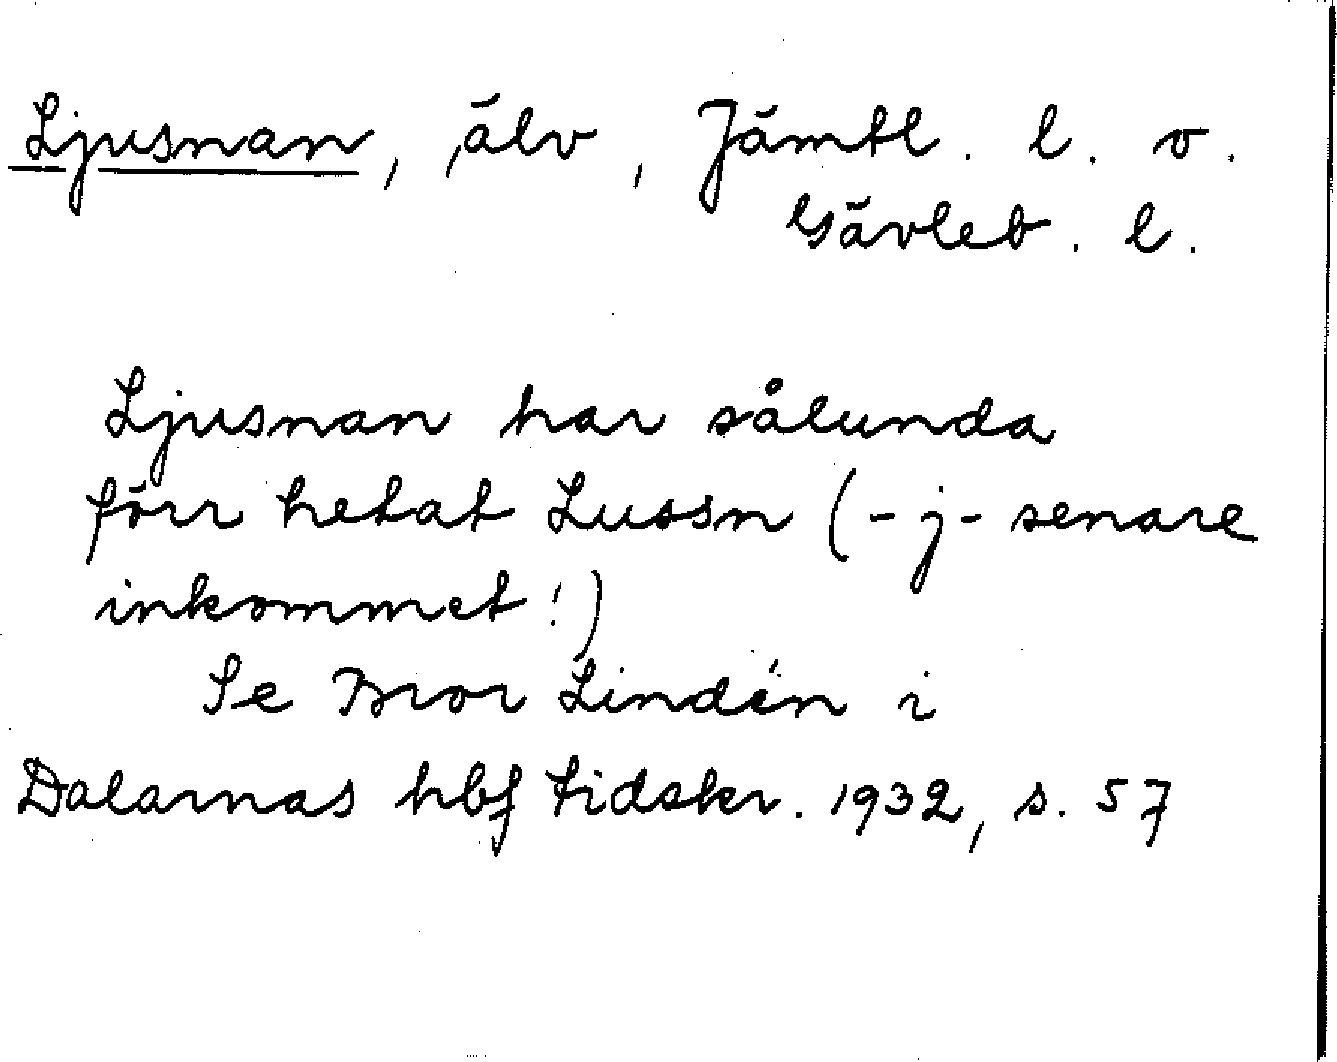 Ljusnan, älv, Jämtl. l. o.
Gävleb. l.
Ljusnan har sålunda
förr hetat Lussn (-j- senare
inkommet!)
Se Bror Lindén i
Dalarnas hbf tidskr. 1932, s. 57